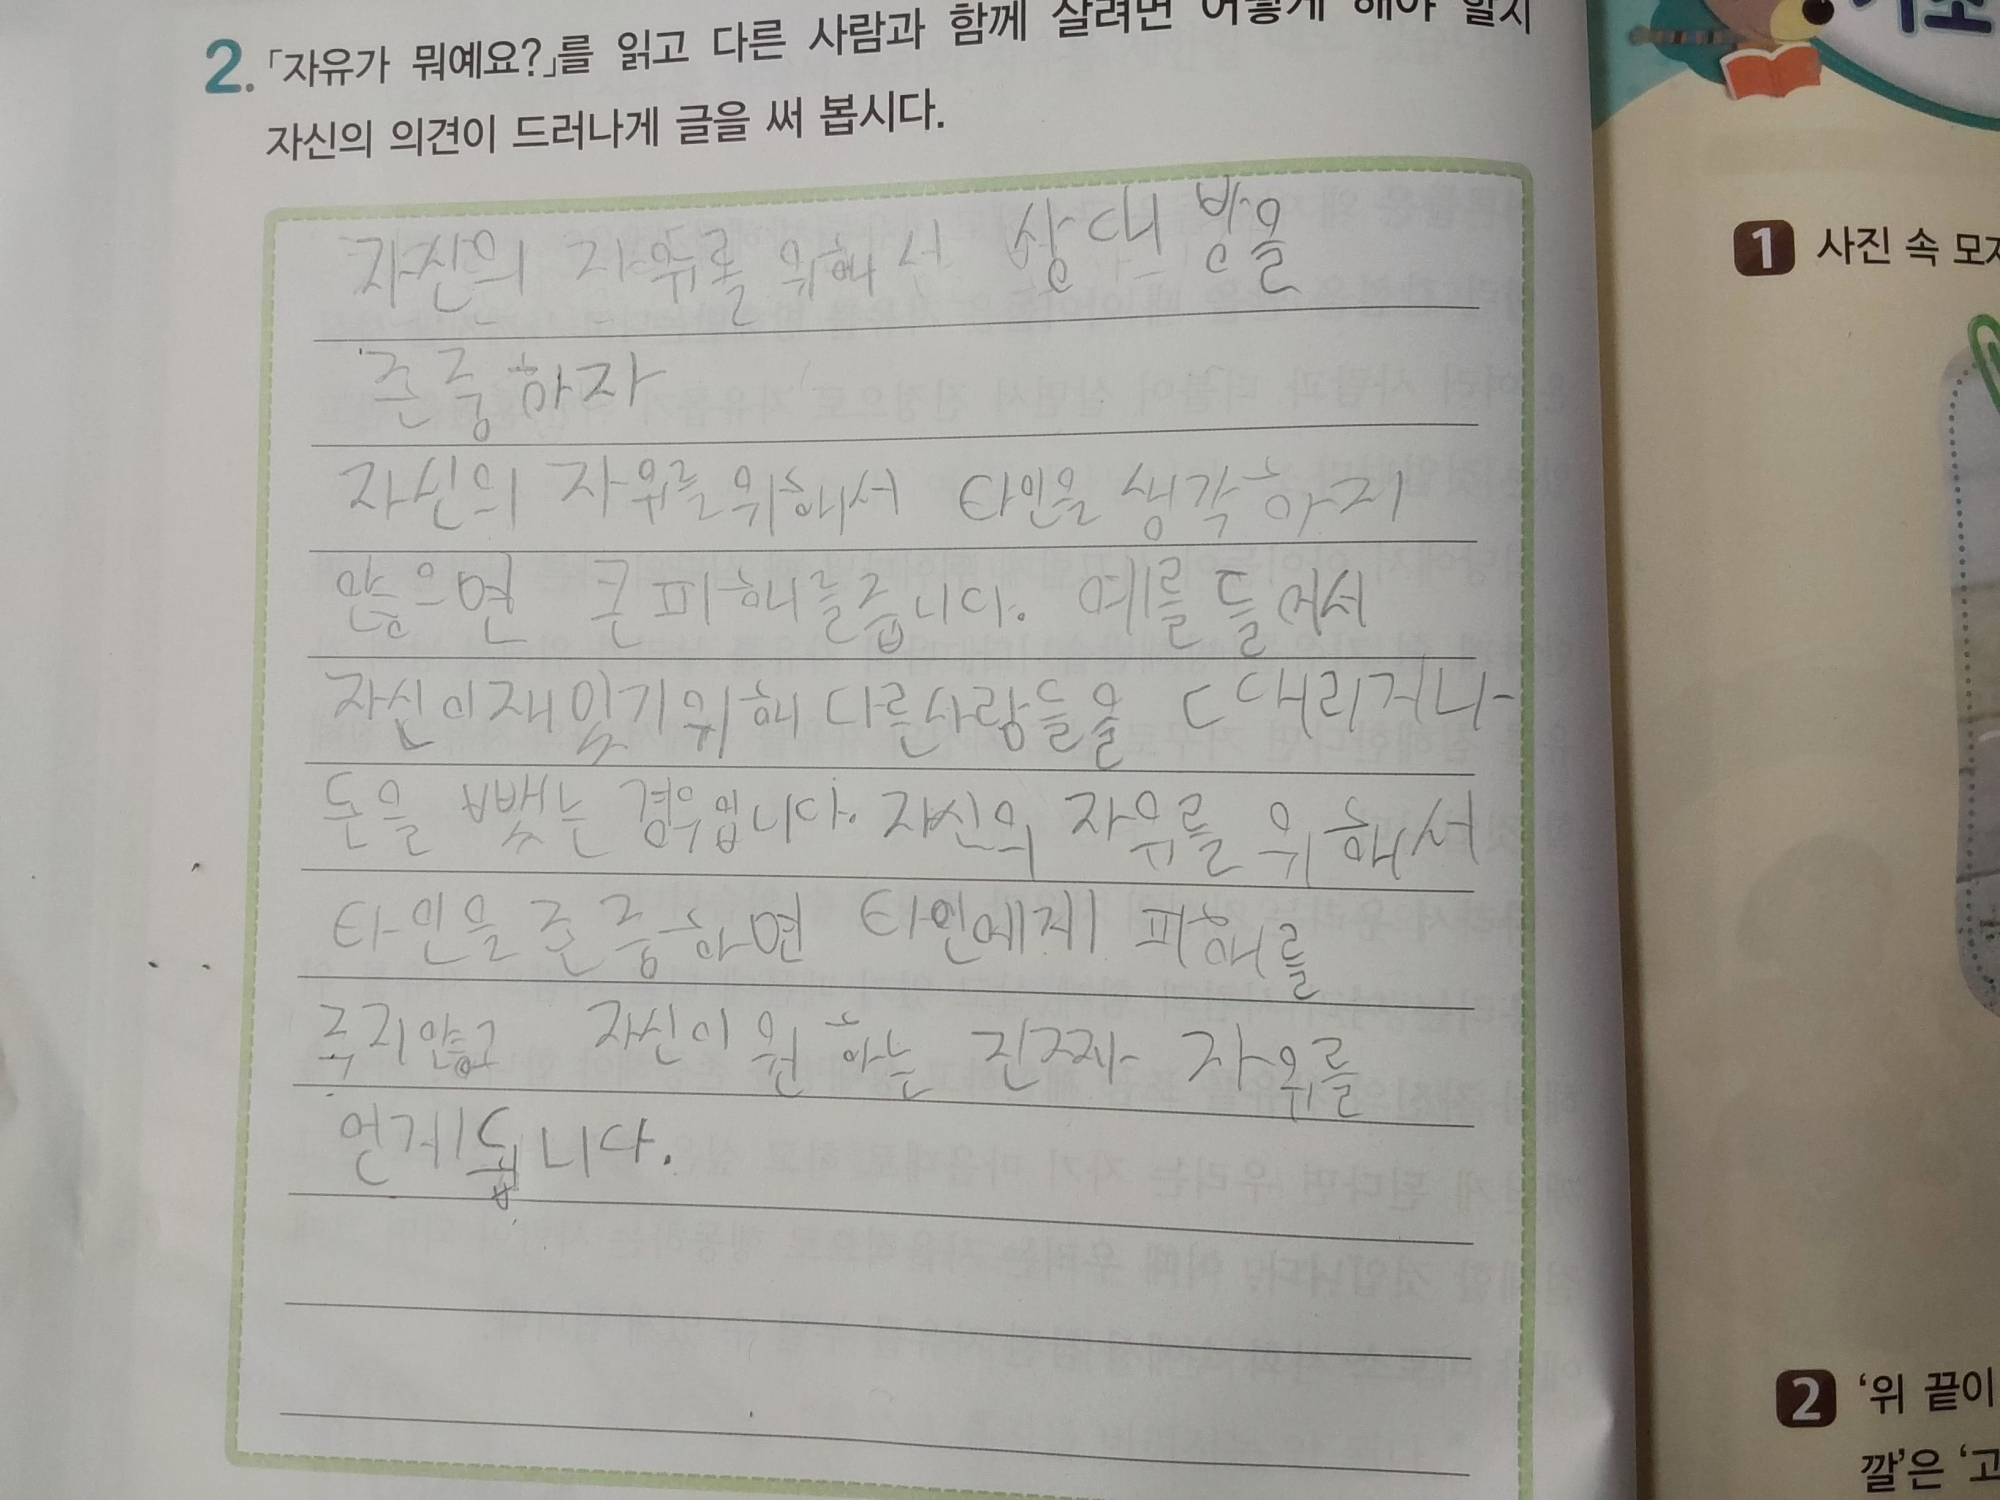 2. 「자유가 뭐예요?」를 읽고 다른 사람과 함께 살려면 어떻게 해야 할지
자신의 의견이 드러나게 글을 써 봅시다.
자신의 자유를 위해서 상대방을
존중하자
자신의 자유를 위해서 타인을 생각하지
않으면 큰 피해를 줍니다. 예를 들어서
자신이 재밌기 위해 다른사람들을 때리거나
돈을 뺏는 경우입니다. 자신의 자유를 위해서
타인을 존중하면 타인에게 피해를
주지않고 자신이 원하는 진짜 자유를
얻게됩니다.
1 사진 속 모자
2 ‘위 끝이
깔’은 ‘고